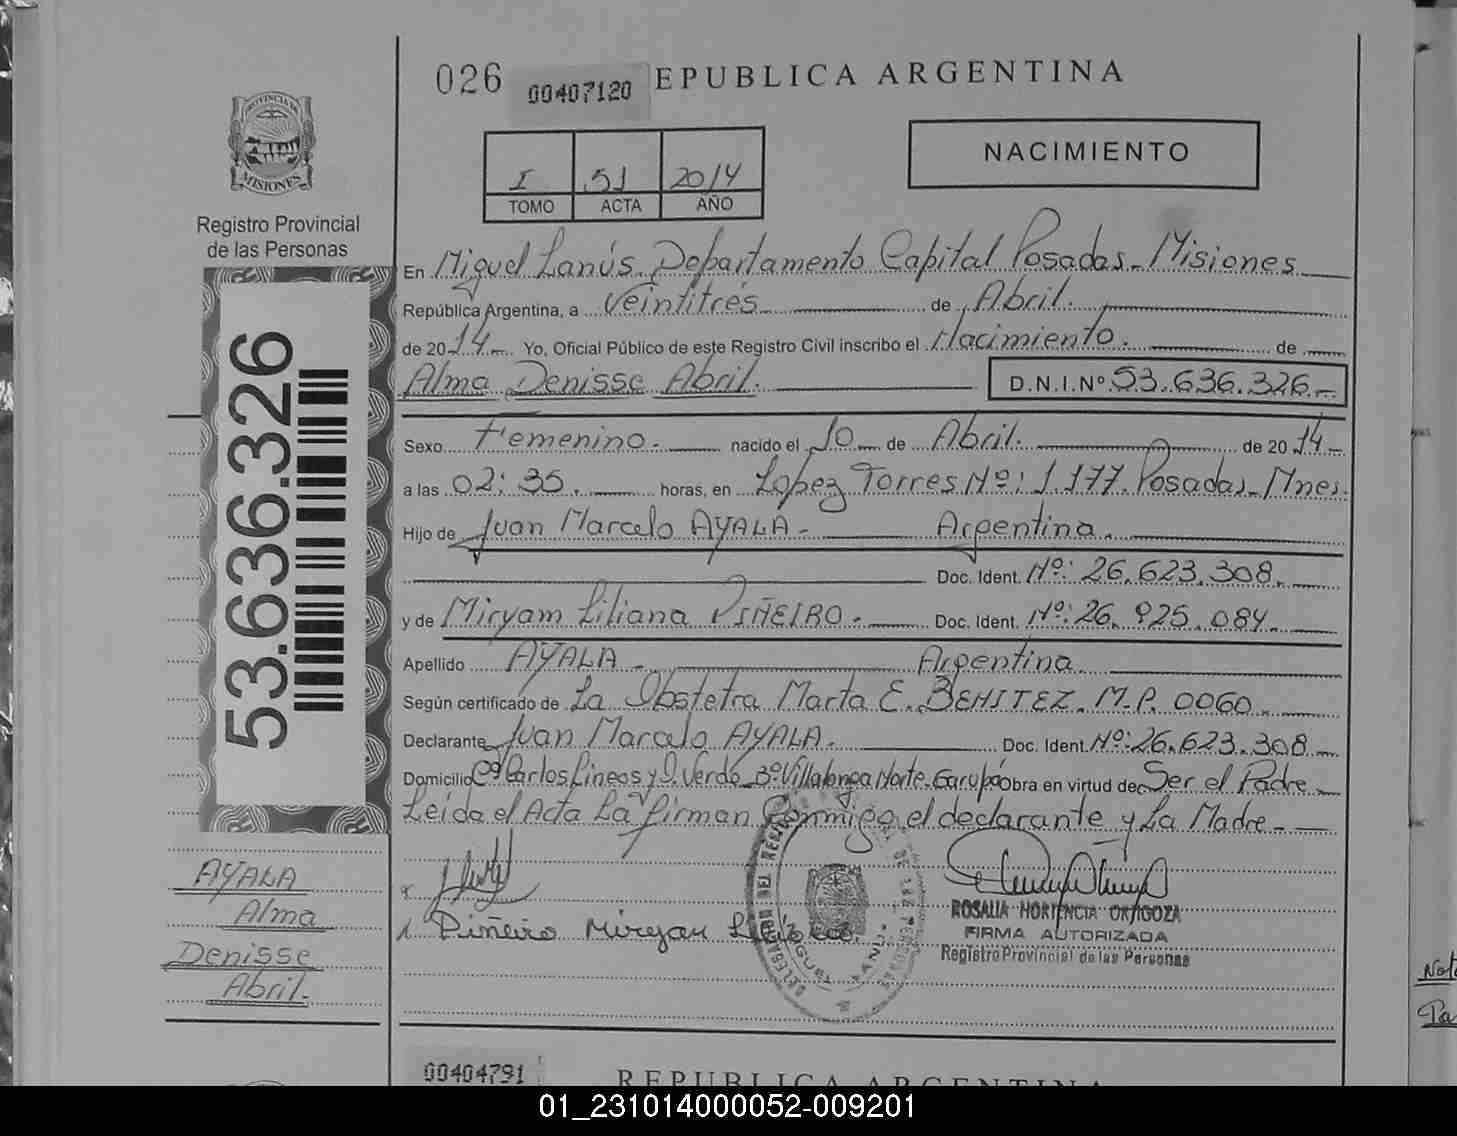 026 00407120 EPUBLICA ARGENTINA
PROVINCIA DE
MISIONES
Registro Provincial
de las Personas
NACIMIENTO
I 51 2014
TOMO ACTA AÑO
En Miguel Lanús. Departamento Capital Posadas - Misiones
República Argentina, a veintitrés de Abril.
de 2014 Yo, Oficial Público de este Registro Civil inscribo el Nacimiento. de
Alma Denisse Abril. D.N.I.Nº 53.636.326.-
Sexo Femenino. nacido el 10 de Abril. de 2014
a las 02:35. horas, en Lopez Torres Nº: 1.177. Posadas - Mnes.
Hijo de Juan Marcelo AYALA - Argentina.
Doc. Ident. Nº: 26.623.308.
y de Miryam Liliana PIÑEIRO. Doc. Ident. Nº: 26.925.084.
Apellido AYALA - Argentina.
Según certificado de La Obstetra Marta E. BENITEZ. M.P. 0060.
Declarante Juan Marcelo AYALA. Doc. Ident. Nº: 26.623.308
Domicilio Cº Carlos Lineos y S. Verde Bº Villalonga Norte. Garupá Obra en virtud de Ser el Padre
Leída el Acta La firman Conmigo el declarante y La Madre -
53.636.326
AYALA
Alma
Denisse
Abril.
Piñeiro Miryam
ROSALIA HORTENCIA ORTIGOZA
FIRMA AUTORIZADA
Registro Provincial de las Personas
00404791 REPUBLICA ARGENTINA
01_231014000052-009201